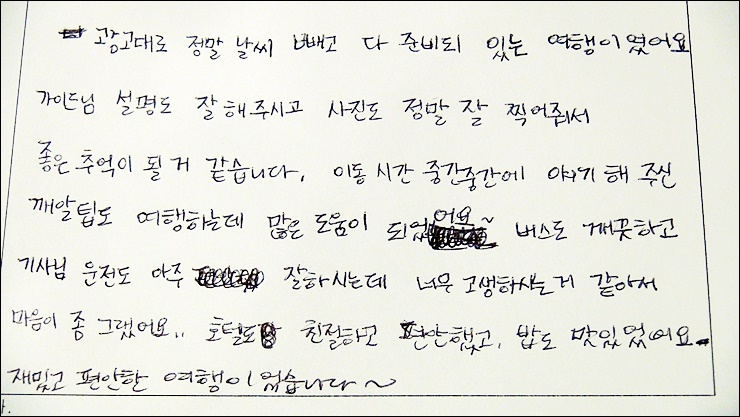 광고대로 정말 날씨 빼고 다 준비되 있는 여행이였어요
가이드님 설명도 잘 해주시고 사진도 정말 잘 찍어줘서
좋은 추억이 될 거 같습니다. 이동 시간 중간중간에 얘기 해 주신
깨알팁도 여행하는데 많은 도움이 되었어요~ 버스도 깨끗하고
기사님 운전도 아주 잘하시는데 너무 고생하시는거 같아서
마음이 좀 그랬어요.. 호텔도 친절하고 편안했고, 밥도 맛있었어요.
재밌고 편안한 여행이었습니다~